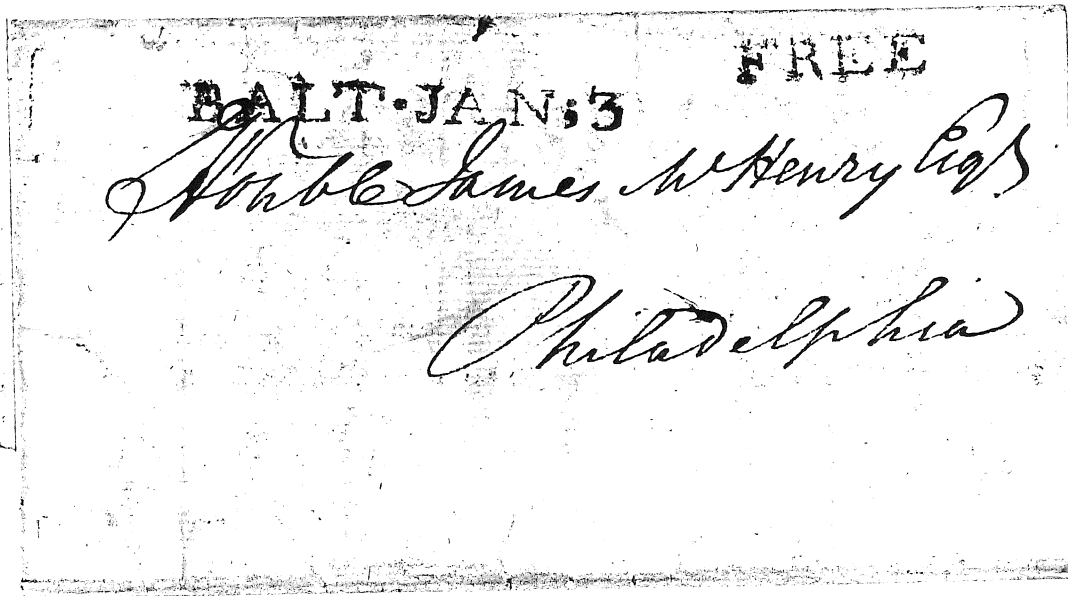 FREE
BALT·JAN;3
Honble James McHenry Esqr
Philadelphia